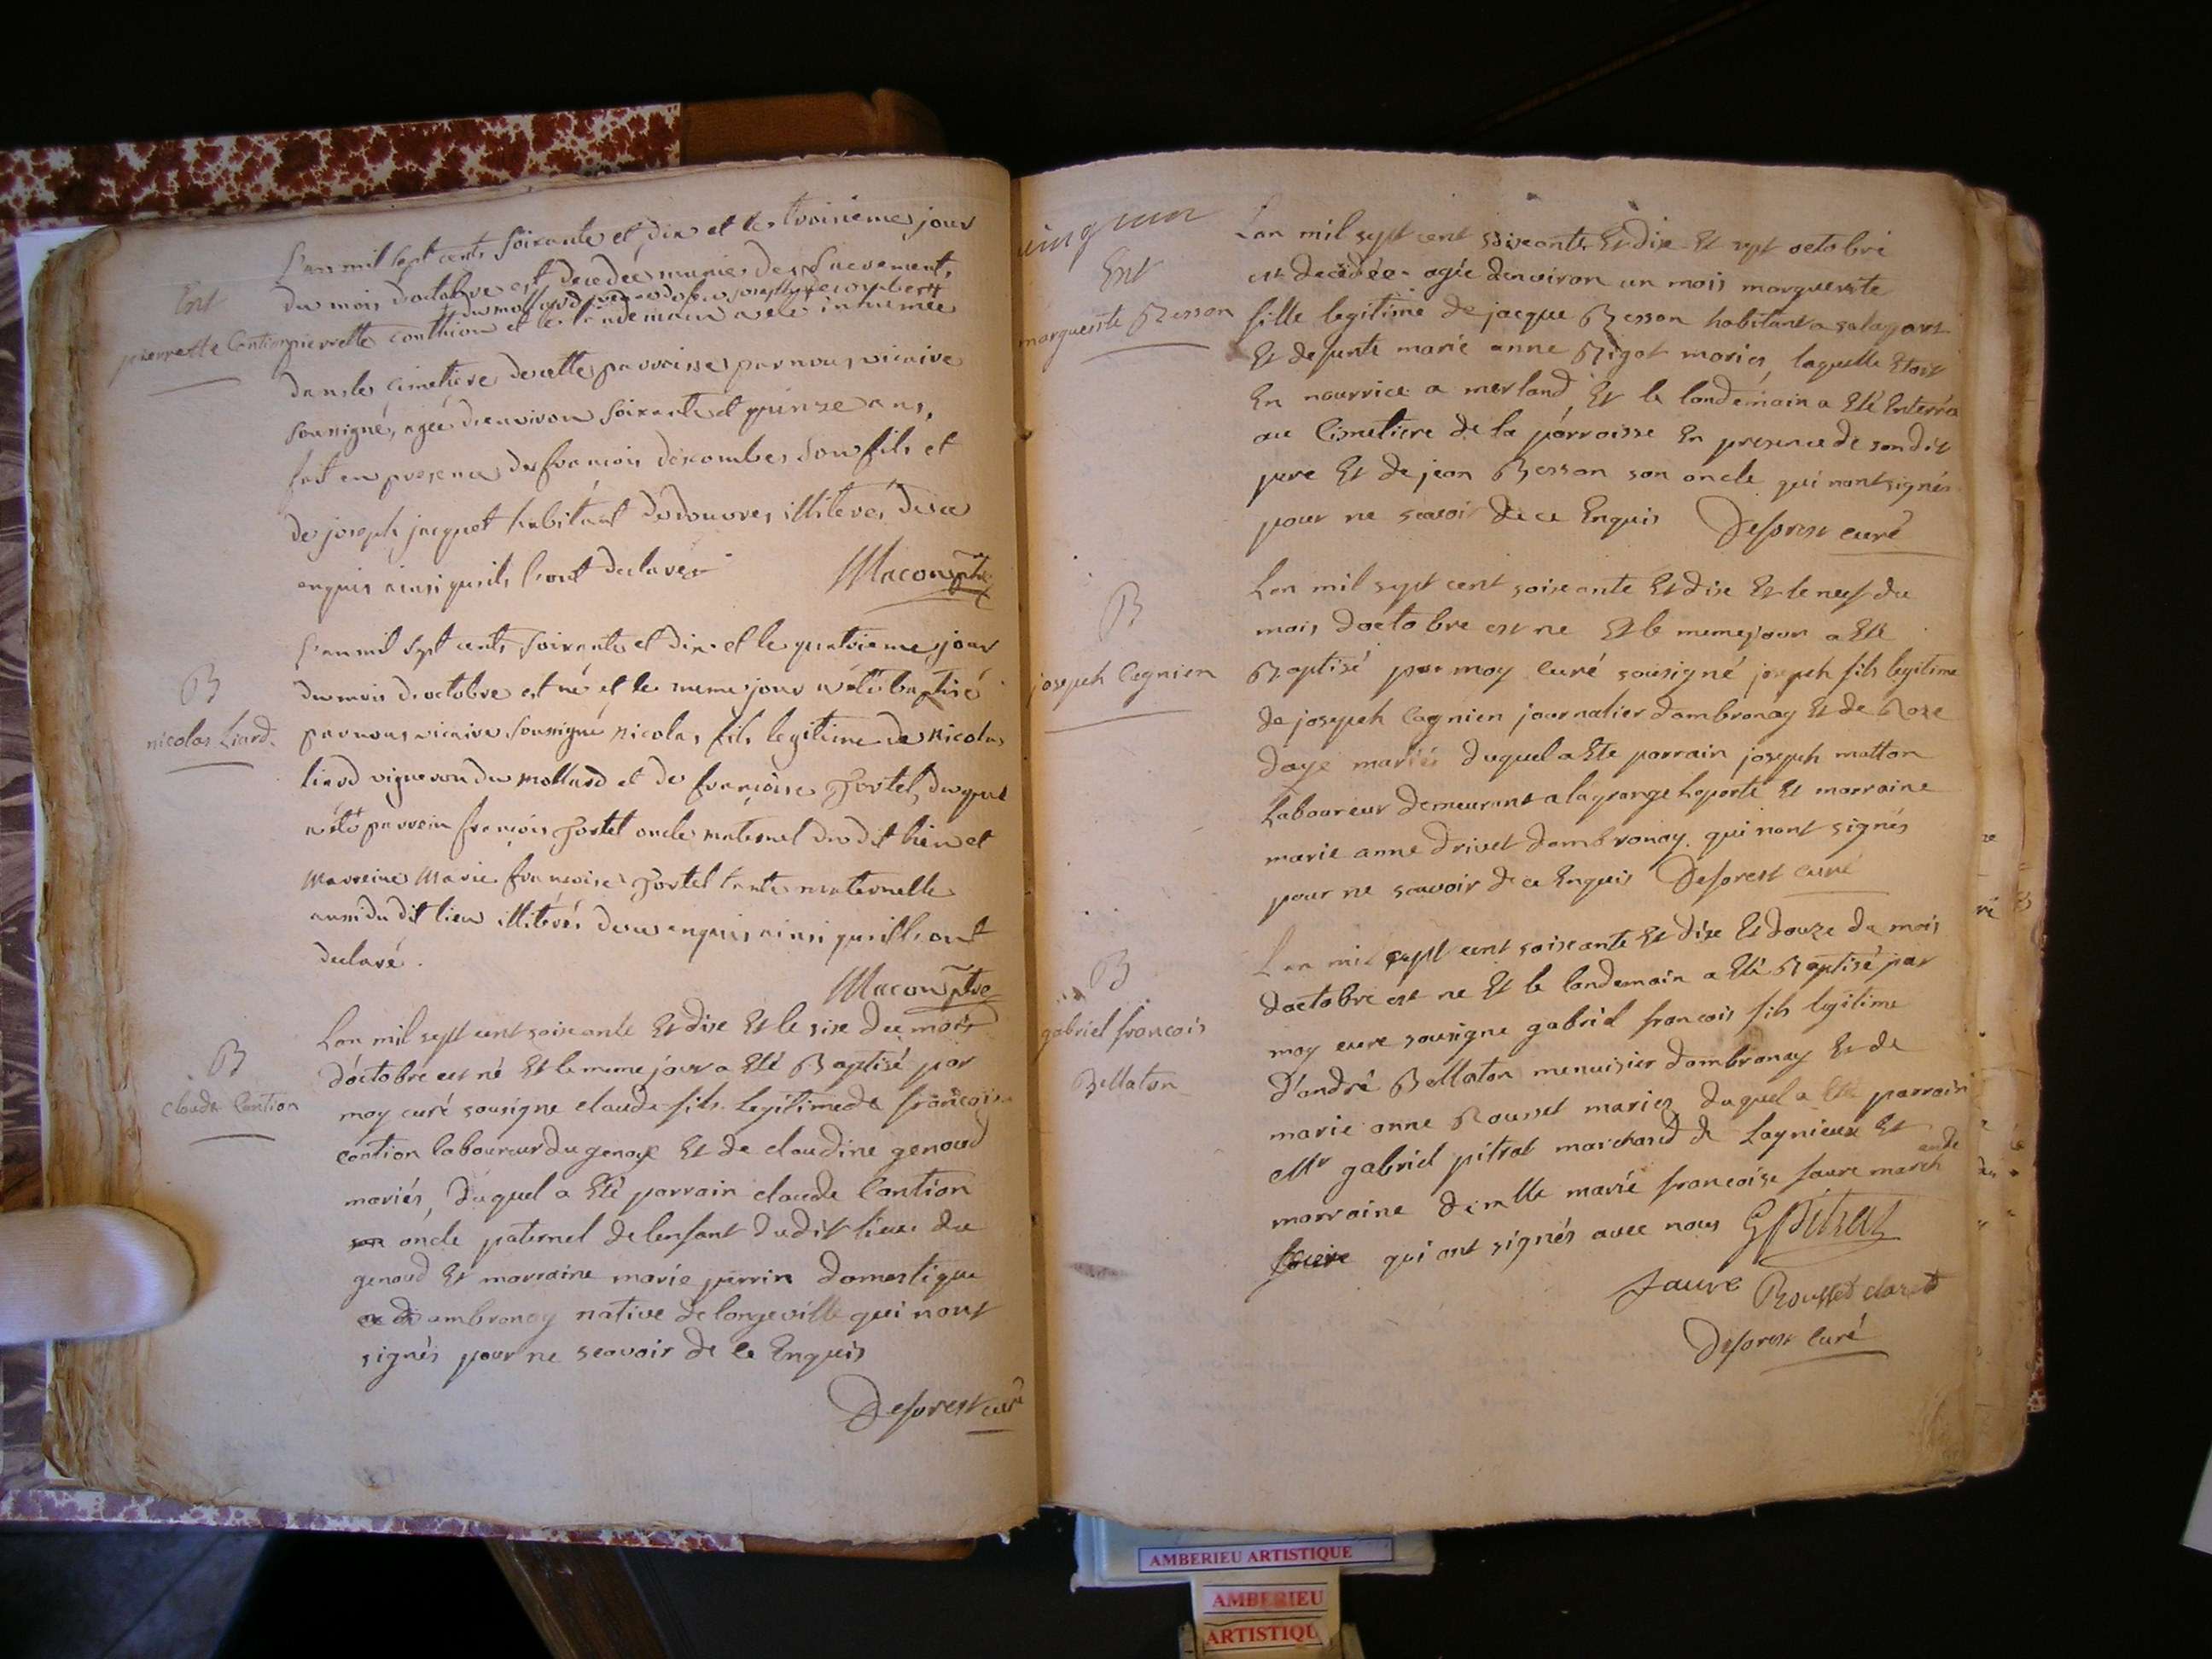 Ent
pierrette Contion
L'an mil sept cents soixante et dix et le troisieme jour
du mois d'octobre est decedée munie des sacrements
du mollard veuve de feu joseph decombes
pierrette conthion et le lendemain a eté inhumée
dans le cimetiere de cette parroisse par nous vicaire
soussigné, agée d'environ soixante et quinze ans,
fait en presence de francois descombes son fils et
de joseph jacquet habitant de douvres illiterés de ce
enquis ainsi qu'ils l'ont declaré
Macon ptre
B
nicolas Liard
L'an mil sept cents soixante et dix et le quatrieme jour
du mois d'octobre est né et le meme jour a été baptisé
par nous vicaire soussigné nicolas fils legitime de nicolas
liard vigneron du mollard et de françoise Jortel, duquel
a été parrein françois Jortel oncle maternel du dit lieu et
Marreine Marie françoise Jortel tante maternelle
aussi du dit lieu illiterés de ce enquis ainsi qu'ils l'ont
declaré.
Macon ptre
B
claude Contion
Lan mil sept cent soixante Et dix Et le six du mois
d'octobre est né Et le meme jour a Eté Baptisé par
moy curé sousigne claude fils legitime de francois
contion laboureur du genoud Et de claudine genoud
mariés, duquel a Eté parrain claude Contion
oncle paternel de lenfant dudit lieu du
genoud Et marraine marie perrin domestique
a ambronay native de longeville qui nont
signés pour ne scavoir de ce Enquis
Deforest curé
vingt un
Ent
marguerite Besson
Lan mil sept cent soixante Et dix Et sept octobre
est decedée agée denviron un mois marguerite
fille legitime de jacque Besson habitant a salaport
Et defunte marie anne Rigot mariés, laquelle Etoit
En nourrice a merland, Et le landemain a Eté Enterrée
au Cimetiere de la parroisse En presence de son dit
pere Et de jean Besson son oncle qui nont signés
pour ne scavoir de ce Enquis Deforest curé
B
joseph Cagnien
Lan mil sept cent soixante Et dix Et le neuf du
mois doctobre est ne Et le meme jour a Eté
Baptisé par moy Curé sousigné joseph fils legitime
de joseph Cagnien journalier dambronay Et de Roze
daye mariés duquel a Ete parrain joseph matton
Laboureur demeurant a la grange laporte Et marraine
marie anne drivet dambronay qui nont signés
pour ne scavoir de ce Enquis Deforest curé
B
gabriel francois
Bellaton
Lan mil sept cent soixante Et dix Et douze du mois
doctobre est ne Et le landemain a Eté Baptisé par
moy cure sousigne gabriel francois fils legitime
d'andré Bellaton menuisier dambronay Et de
marie anne Rousset mariés duquel a Eté parrain
Mr gabriel pitrat marchand de Lagnieux Et
marraine demlle marie francoise faure marchande
qui ont signés avec nous G Pitrat
faure Rousset claret
Deforest Curé
AMBERIEU ARTISTIQUE
AMBERIEU
ARTISTIQU